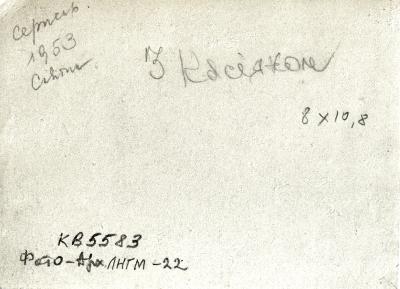 серпень
1953
З Касіяном
8 х 10,8
КВ 5583
Фото-Арх ЛНГМ-22